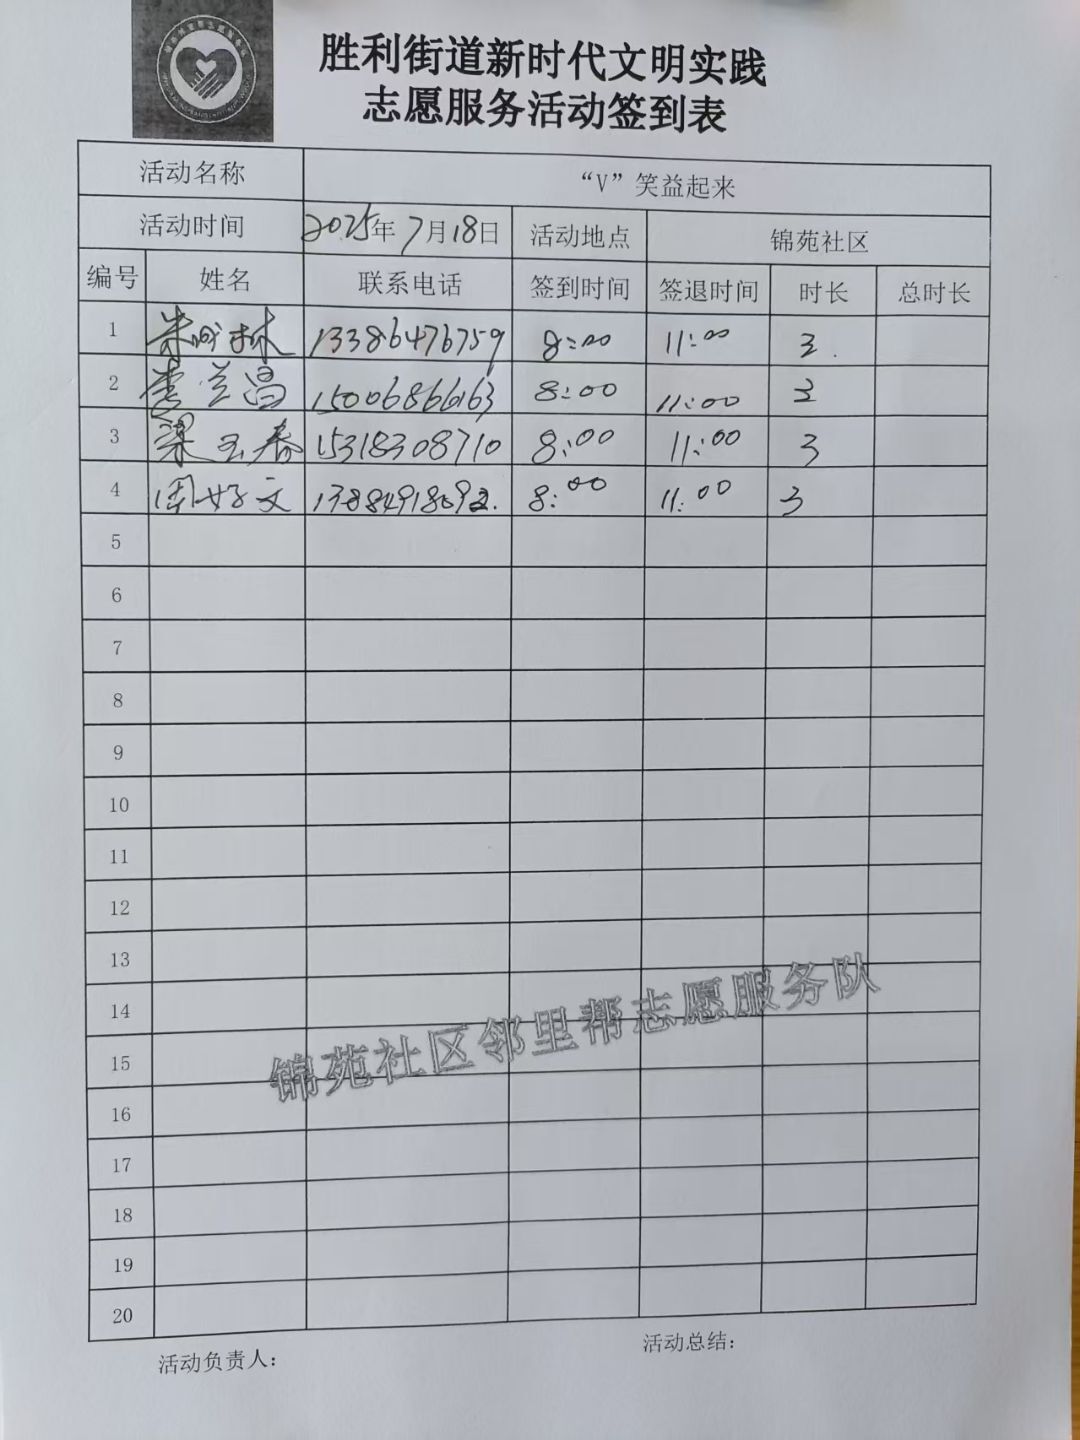 胜利街道新时代文明实践
志愿服务活动签到表
活动名称 “V”笑益起来
活动时间 2025年7月18日 活动地点 锦苑社区
编号 姓名 联系电话 签到时间 签退时间 时长 总时长
1 朱成林 13386476759 8:00 11:00 3.
2 李兰昌 15006866163 8:00 11:00 3
3 梁玉春 15318308710 8:00 11:00 3
4 周好文 8:00 11:00 3
5
6
7
8
9
10
11
12
13
14
15
16
17
18
19
20
锦苑社区邻里帮志愿服务队
活动负责人： 活动总结：